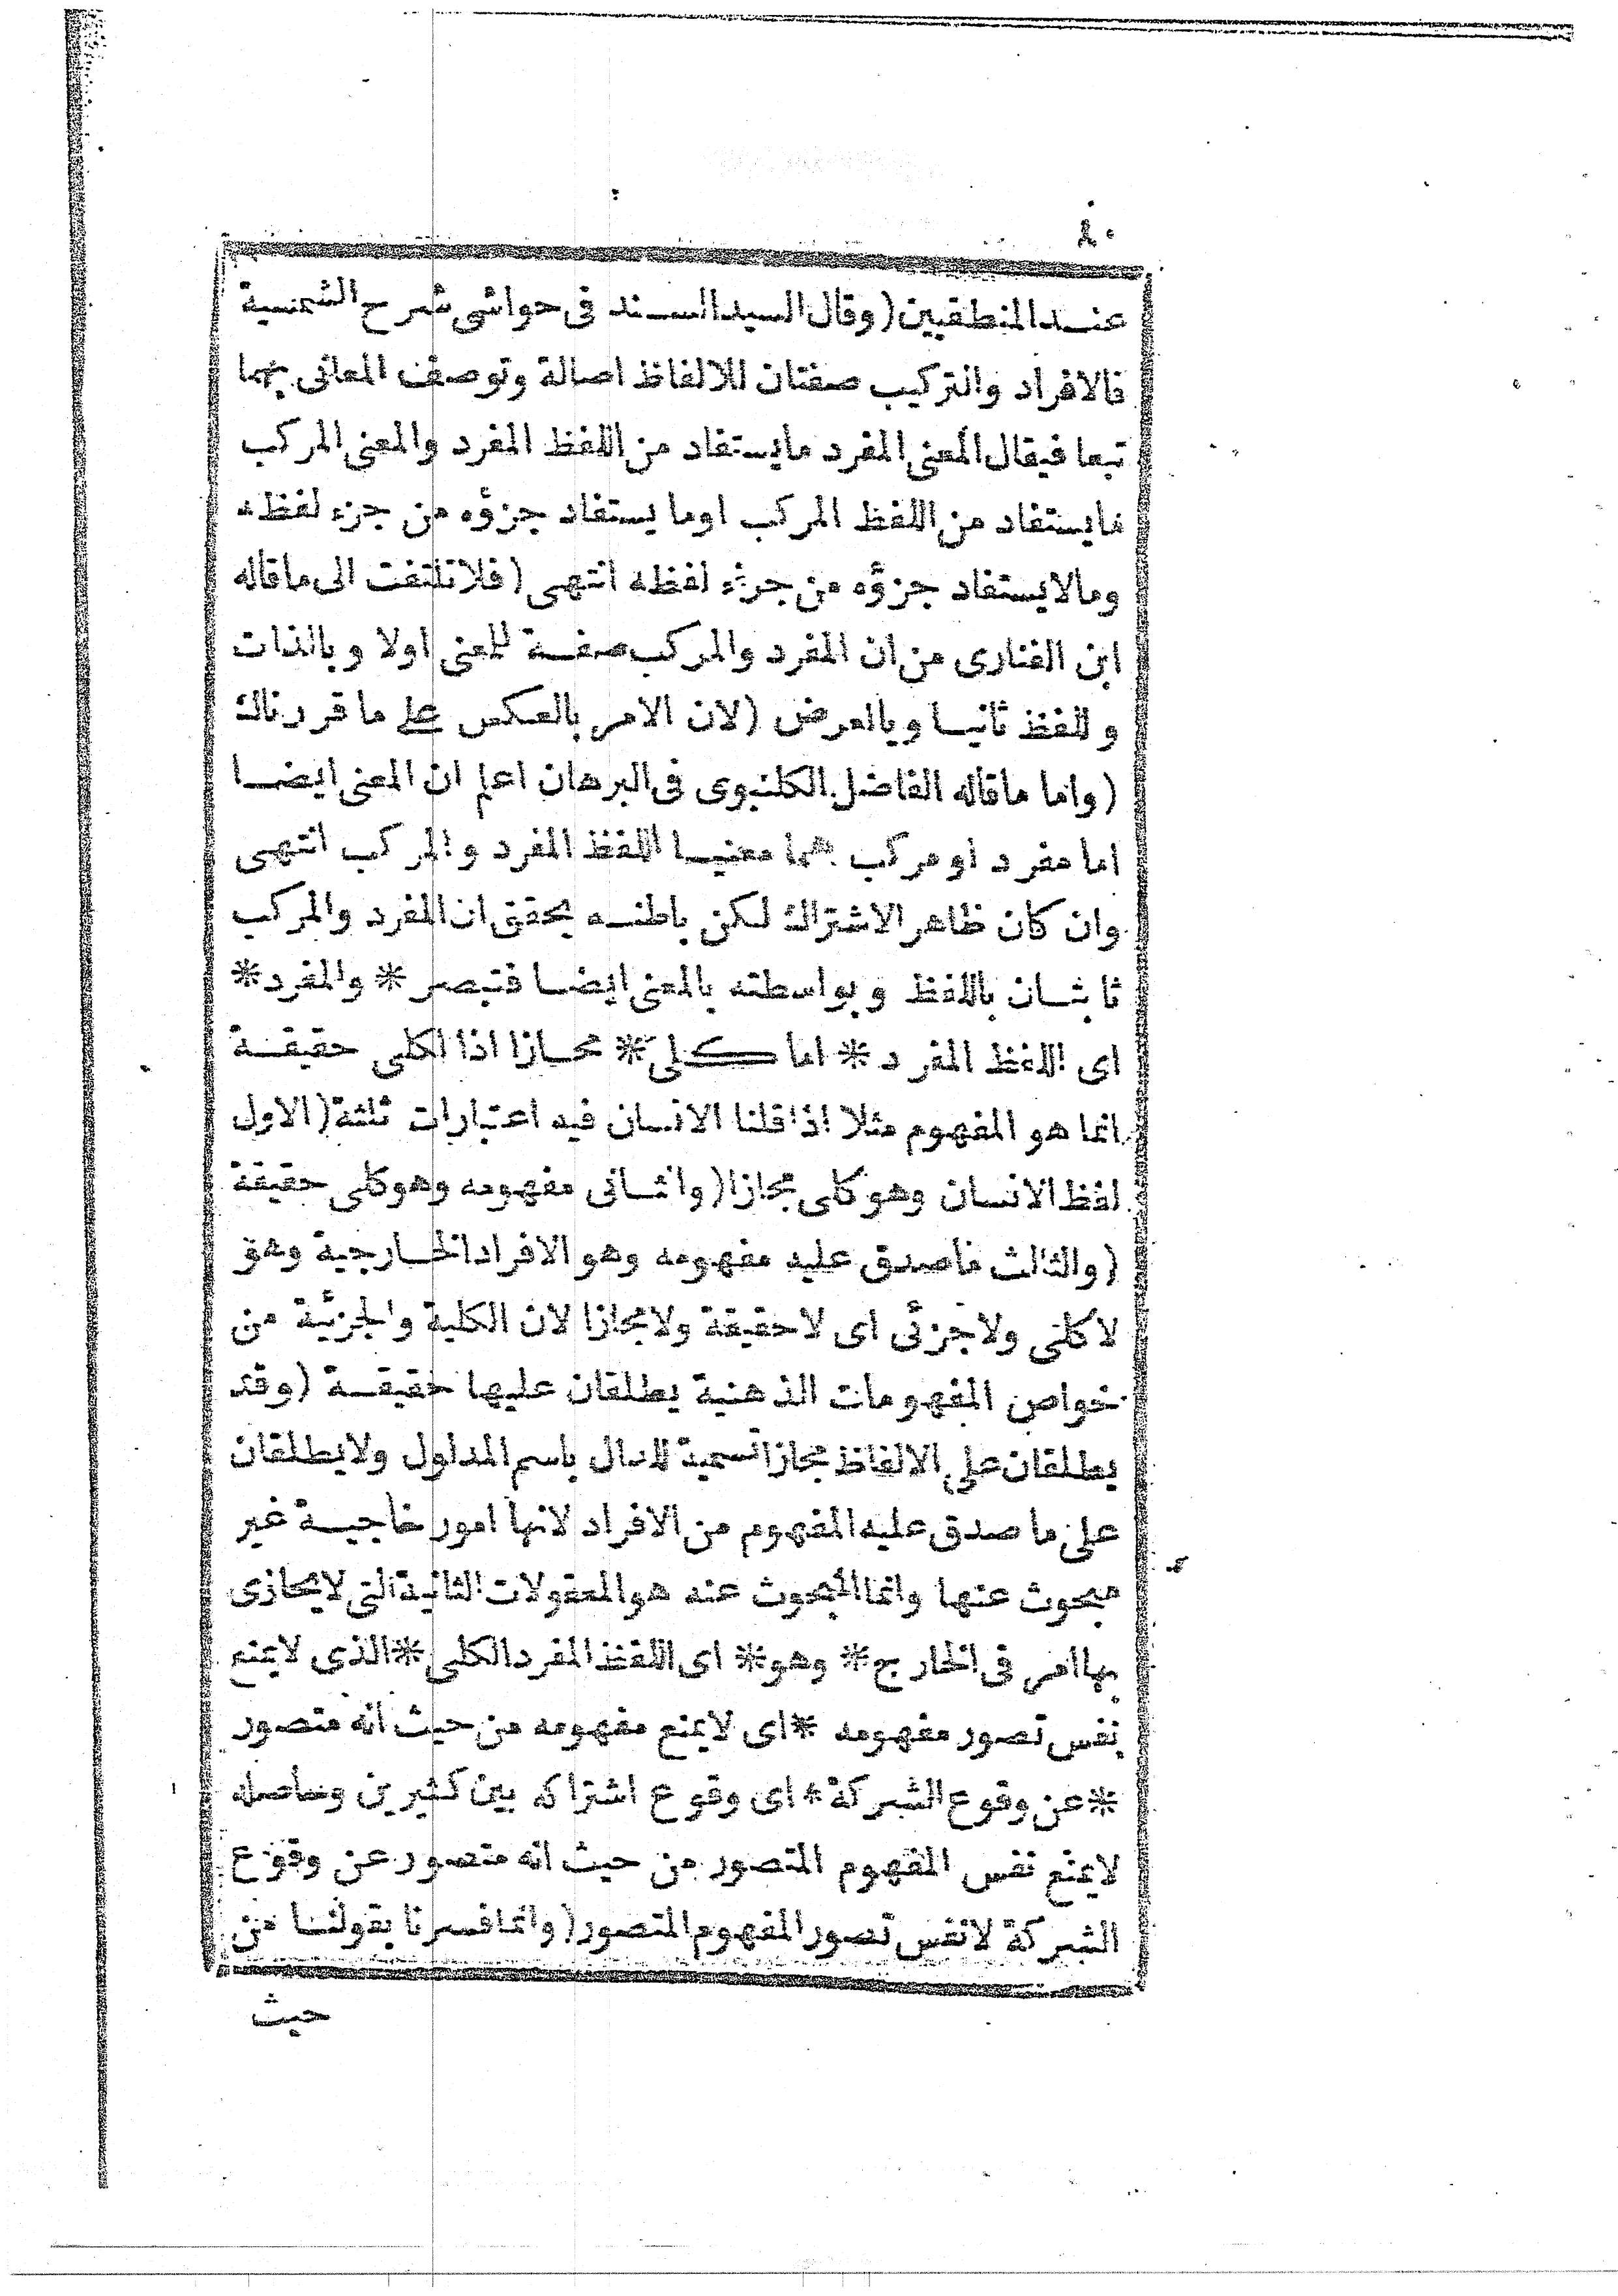 عند المنطقيين (وقال السيد السند فى حواشى شرح الشمسية
فالافراد والتركيب صفتان للالفاظ اصالة وتوصف المعانى بهما
تبعا فيقال المعنى المفرد مايستفاد من اللفظ المفرد والمعنى المركب
مايستفاد من اللفظ المركب اوما يستفاد جزؤه من جزء لفظه
ومالايستفاد جزؤه من جزء لفظه انتهى (فلاتلتفت الى ماقاله
ابن الفنارى من ان المفرد والمركب صفة للمعنى اولا وبالذات
وللفظ ثانيا وبالعرض (لان الامر بالعكس على ما قررناك
(واما ماقاله الفاضل الكلنبوى فى البرهان اعلم ان المعنى ايضا
اما مفرد او مركب هما معنيا اللفظ المفرد والمركب انتهى
وان كان ظاهر الاشتراك لكن باطنه يحقق ان المفرد والمركب
ثابتان باللفظ وبواسطته بالمعنى ايضا فتبصر * والمفرد *
اى اللفظ المفرد * اما كلى * مجازا اذا لكلى حقيقة
انما هو المفهوم مثلا اذا قلنا الانسان فيه اعتبارات ثلثة (الاول
لفظ الانسان وهو كلى مجازا (والثانى مفهومه وهو كلى حقيقة
(والثالث ماصدق عليه مفهومه وهو الافراد الخارجية وهو
لا كلى ولا جزئى اى لا حقيقة ولا مجازا لان الكلية والجزئية من
خواص المفهومات الذهنية يطلقان عليها حقيقة (وقد
يطلقان على الالفاظ مجازا تسمية للدال باسم المدلول ولايطلقان
على ما صدق عليه المفهوم من الافراد لانها امور خاجية غير
مبحوث عنها وانما المبحوث عنه هو المعقولات الثانية التى لايحاذى
بها امر فى الخارج * وهو * اى اللفظ المفرد الكلى * الذى لايمنع
نفس تصور مفهومه * اى لايمنع مفهومه من حيث انه متصور
* عن وقوع الشركة * اى وقوع اشتراكه بين كثيرين وحاصله
لايمنع نفس المفهوم المتصور من حيث انه متصور عن وقوع
الشركة لانفس تصور المفهوم المتصور (وانما فسرنا بقولنا من
حيث